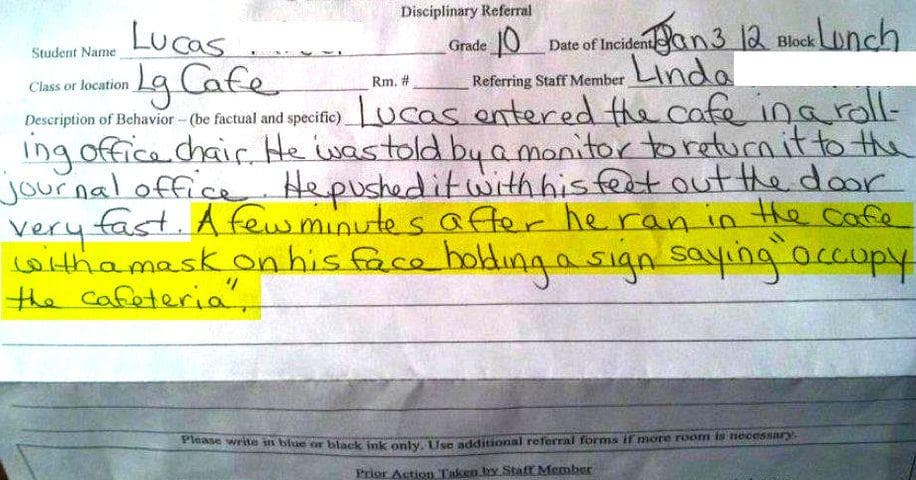 Disciplinary Referral
Student Name Lucas Grade 10 Date of Incident Jan 3 12 Block Lunch
Class or location Lg Cafe Rm. # Referring Staff Member Linda
Description of Behavior – (be factual and specific) Lucas entered the cafe in a roll-
ing office chair. He was told by a monitor to return it to the
journal office. He pushed it with his feet out the door
very fast. A few minutes after he ran in the cafe
with a mask on his face holding a sign saying "occupy
the cafeteria".
Please write in blue or black ink only. Use additional referral forms if more room is necessary.
Prior Action Taken by Staff Member